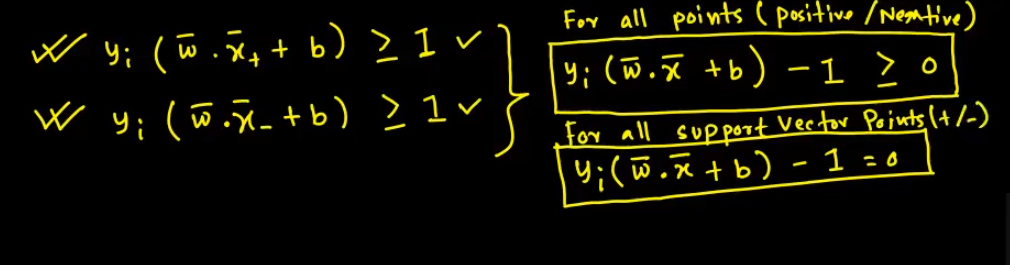 yᵢ (w̄ . x̄₊ + b) ≥ 1
yᵢ (w̄ . x̄₋ + b) ≥ 1
For all points (positive/Negative)
yᵢ (w̄ . x̄ + b) - 1 ≥ 0
For all support Vector Points (+/-)
yᵢ (w̄ . x̄ + b) - 1 = 0